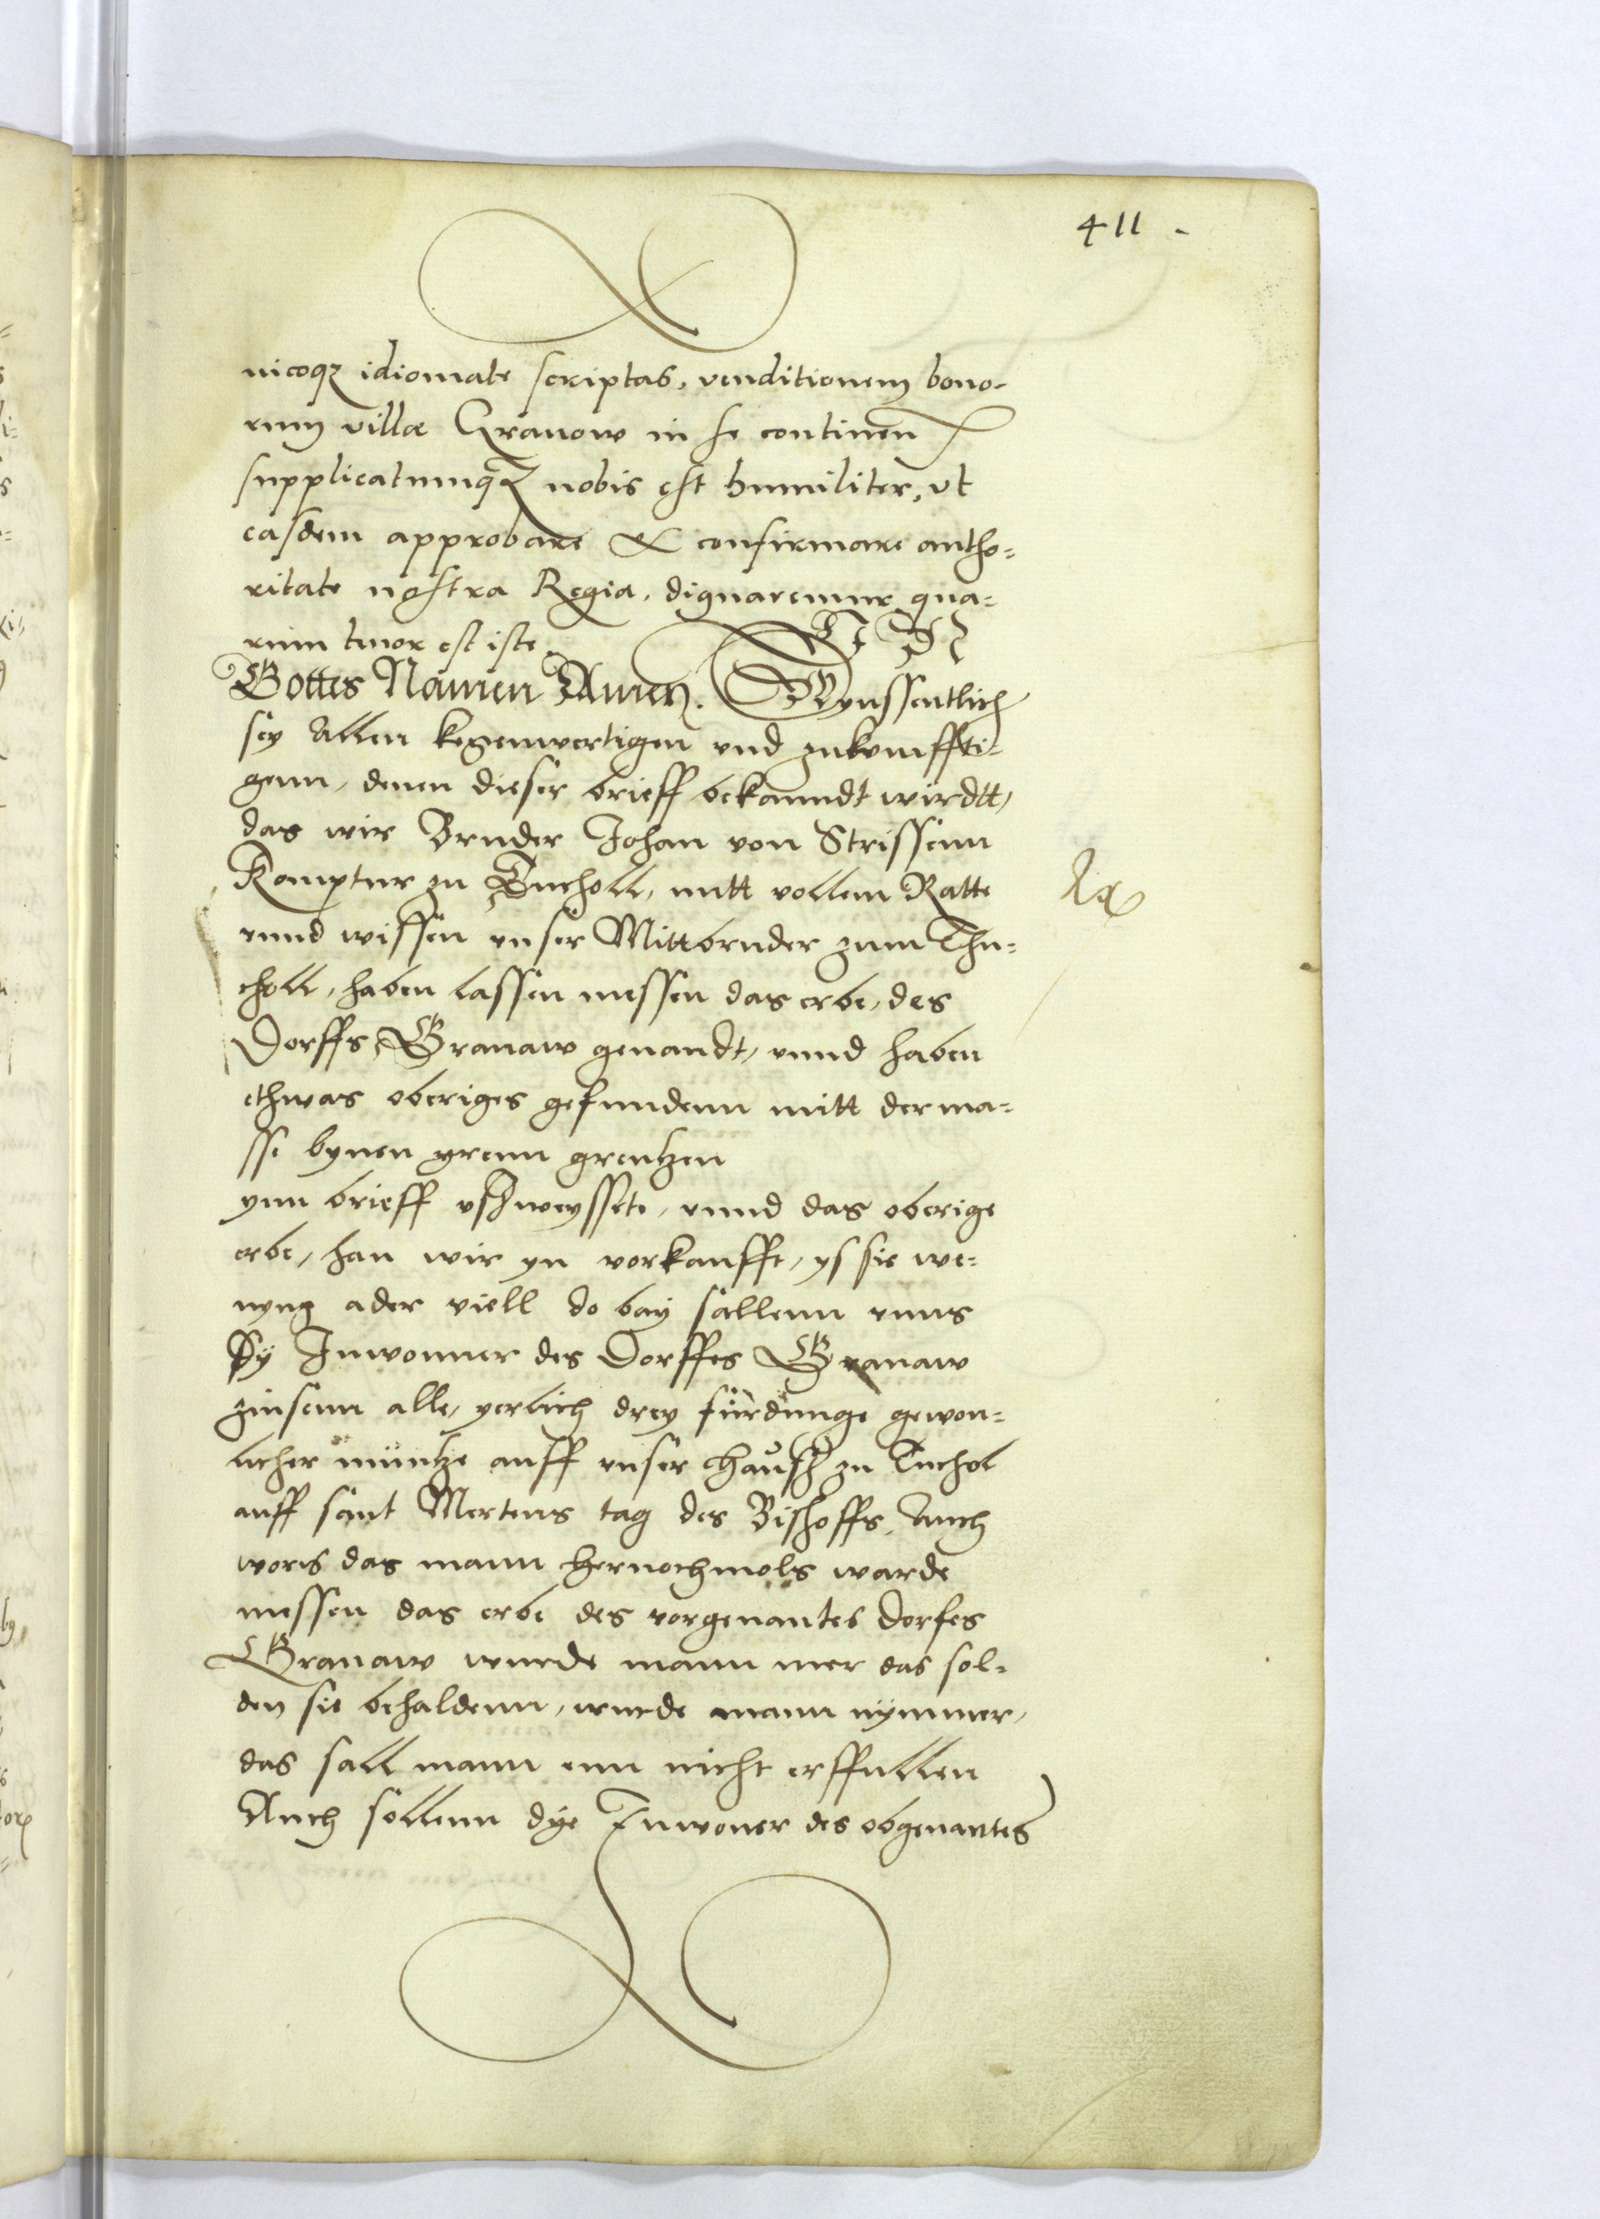 411
nicoqz idiomate scriptas, venditionem bono-
rum villæ Granow in se continen
supplicatumqz nobis est humiliter, vt
easdem approbare & confirmare autho-
ritate nostra Regia, dignaremur qua-
rum tenor est iste. IN
Gottes Namen Amen. Wyssentlich
sey Allen kegenwertigen vnd zukumffti-
genn, denen dieser brieff bekanndt wirdtt,
das wir Bruder Johan von Strissenn
Komptur zu Tucholl, mitt vollem Ratte
vnnd wissen vnser Mittbruder zum Thu-
choll, haben lassen messen das erbe, des
Dorffs Granaw genandt, vnnd haben
ethwas oberiges gefundenn mitt der ma-
sse bynen yrenn grentzen
ynn brieff vsweyssete, vnnd das oberige
erbe, han wir yn vorkaufft, ys sie we-
nyng ader viell do bay sallenn vnns
Dy Inwonner des Dorffes Granaw
zinsenn alle, yerlich drey fürdunge gewon-
licher müntze auff vnser Haüs zu Tuchol
auff sant Mertens tag des Bischoffs, Auch
wers das mann hernochmols warde
messen das erbe des vorgenantes dorfes
Granaw wurde mann mer das sol-
den sie behaldenn, wurde mann nymmer,
das sall mann enn nicht erffullen
Auch sollenn dye Inwoner des obgenantes